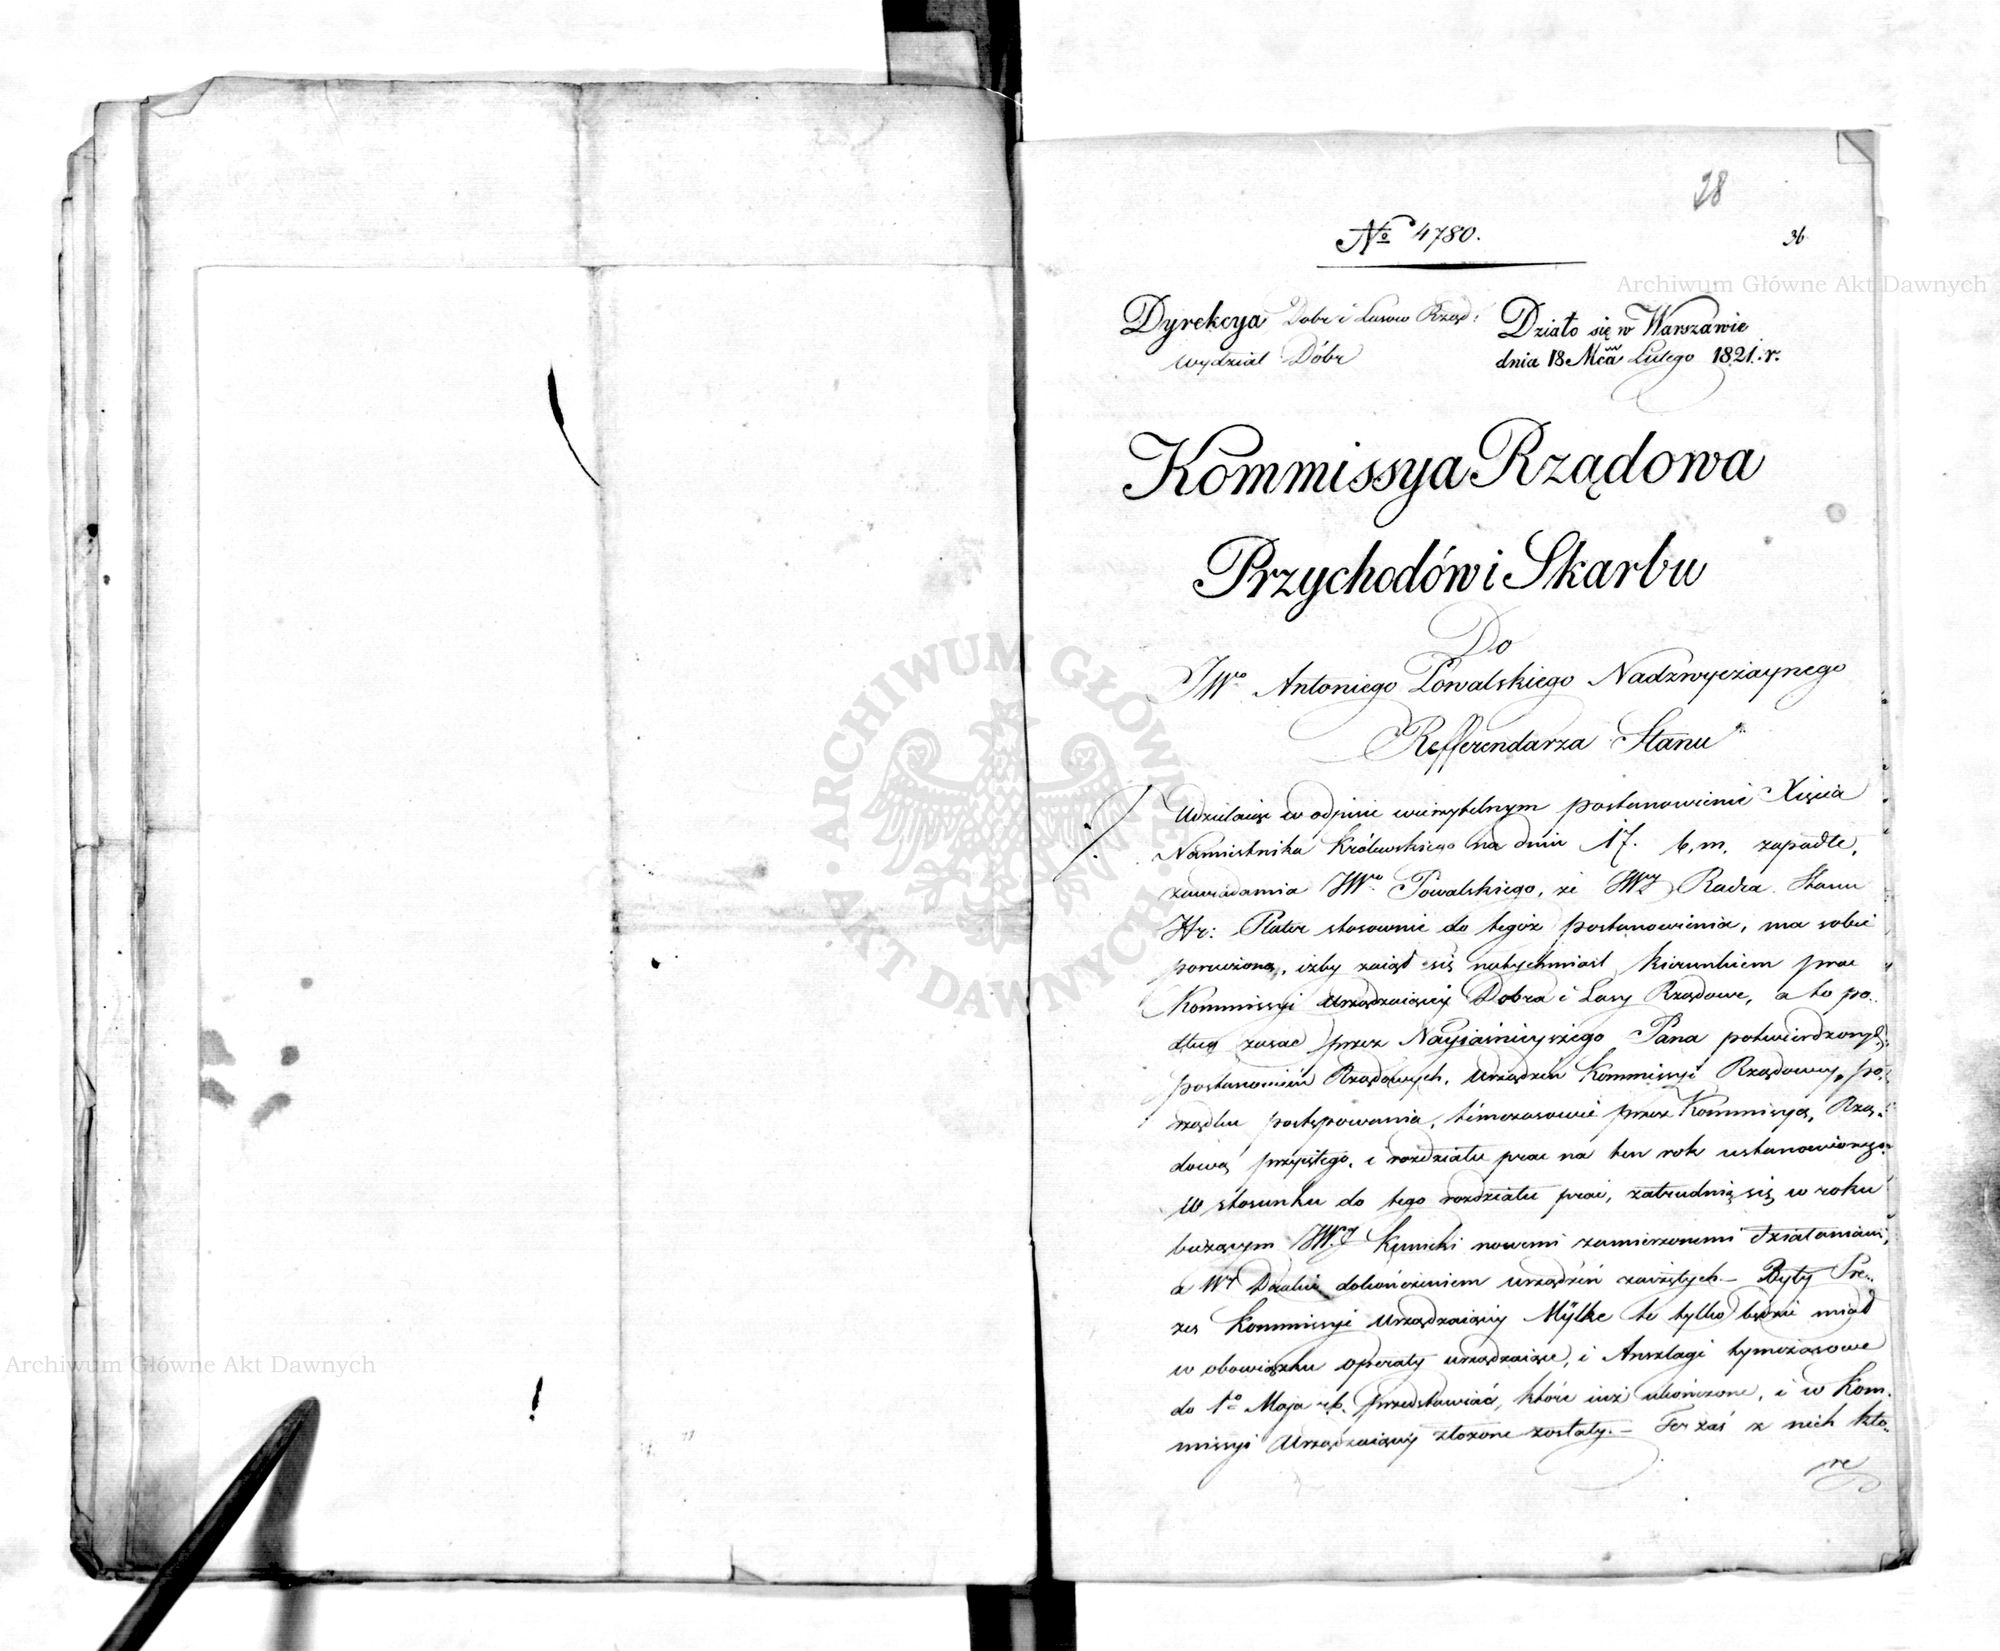 28
№ 4780.
36
Dyrekcya Dobr i Lasow Rząd:
Wydział Dóbr
Działo się w Warszawie
dnia 18 Mca Lutego 1821. r.
Kommissya Rządowa
Przychodów i Skarbu
Do
JWo Antoniego Powalskiego Nadzwyczaynego
Refferendarza Stanu
Udzielaiąc w odpisie wierzytelnym postanowienie Xięcia
Namiestnika Królewskiego na dniu 17. b. m. zapadłe,
zawiadamia JWo Powalskiego, że JWJ Radca Stanu
Hr: Plater stosownie do tegoż postanowienia, ma sobie
poruczone, iżby zaiął się natychmiast kierunkiem prac
Kommissyi Urządzaiącéy Dobra i Lasy Rządowe, a to po-
dług zasad przez Nayiaśnieyszego Pana potwierdzonych,
postanowień Rządowych, urządzeń Kommissyi Rządowey, po-
rządku postępowania, tímczasowie przez Kommissyą Rzą-
dową przyiętego, i rozdziału prac na ten rok ustanowionego.
W stosunku do tego rozdziału prac, zatrudnią się w roku
bieżącym JW.J Kunicki nowemi zamierzonemi działaniami,
a Wr dokończeniem urządzeń zaczętych – Były Pre-
zes Kommissyi Urządzaiącéy Mÿlke te tylko będzie miał
w obowiązku operaty urządzaiące, i Anszlagi tymczasowe
do 1o Maja r.b. przedstawiać, które iuż ukończone, i w Kom-
missyi Urządzaiącéy złożone zostały. – Ter zaś z nich któ-
re
Archiwum Główne Akt Dawnych
Archiwum Główne Akt Dawnych
ARCHIWUM GŁÓWNE AKT DAWNYCH